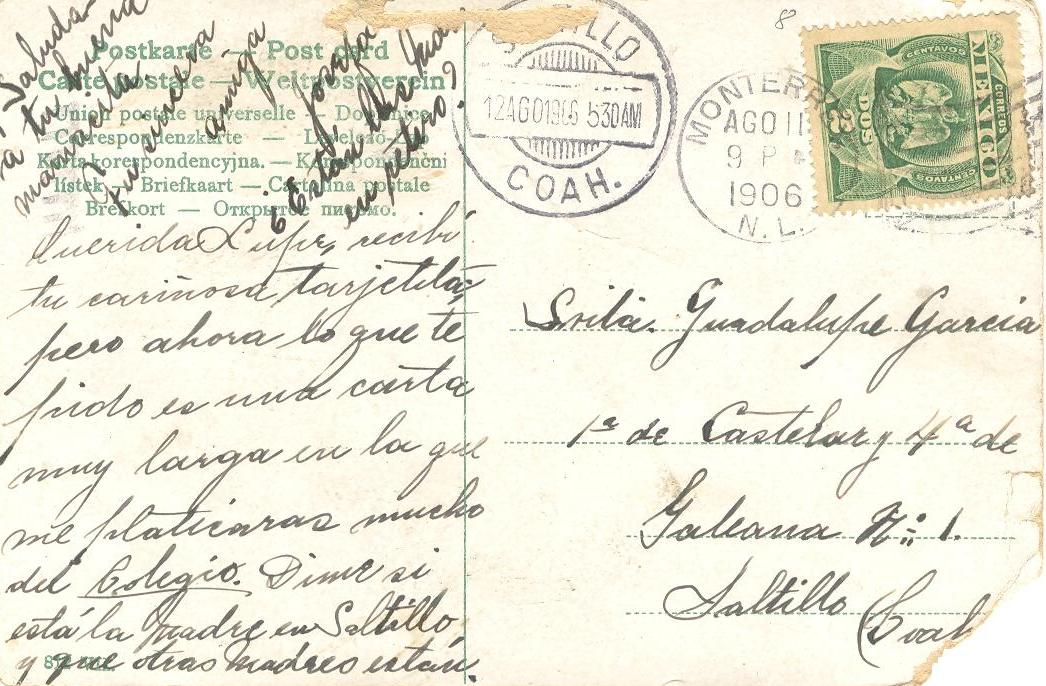 Postkarte — Post card
Carte postale — Weltpostverein
Union postale universelle —
Correspondenzkarte —
—
lístek — Briefkaart — Cartolina postale
Brefkort — Открытое письмо.
Saluda
a tu buena
mamacita.
Tu sincera
amiga
Josefa
¿Están las
en pteso?
Querida Lupe, recibí
tu cariñosa tarjetita,
pero ahora lo que te
pido es una carta
muy larga en la que
me platicaras mucho
del Colegio. Dime si
está la Madre en Saltillo,
y que otras madres están.
SALTILLO
12 AGO 1906 5 30 AM
COAH.
MONTERR
AGO 11
9 P
1906
N. L.
8
CORREOS
MEXICO
CENTAVOS
DOS
2
CENTAVOS
Srita. Guadalupe Garcia
1ª de Castelar y 4ª de
Galeana Nº 1.
Saltillo Coah